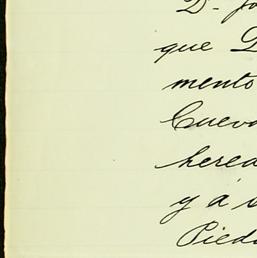 D. Jo
que D
mento
Cueva
hered
y á
Pied